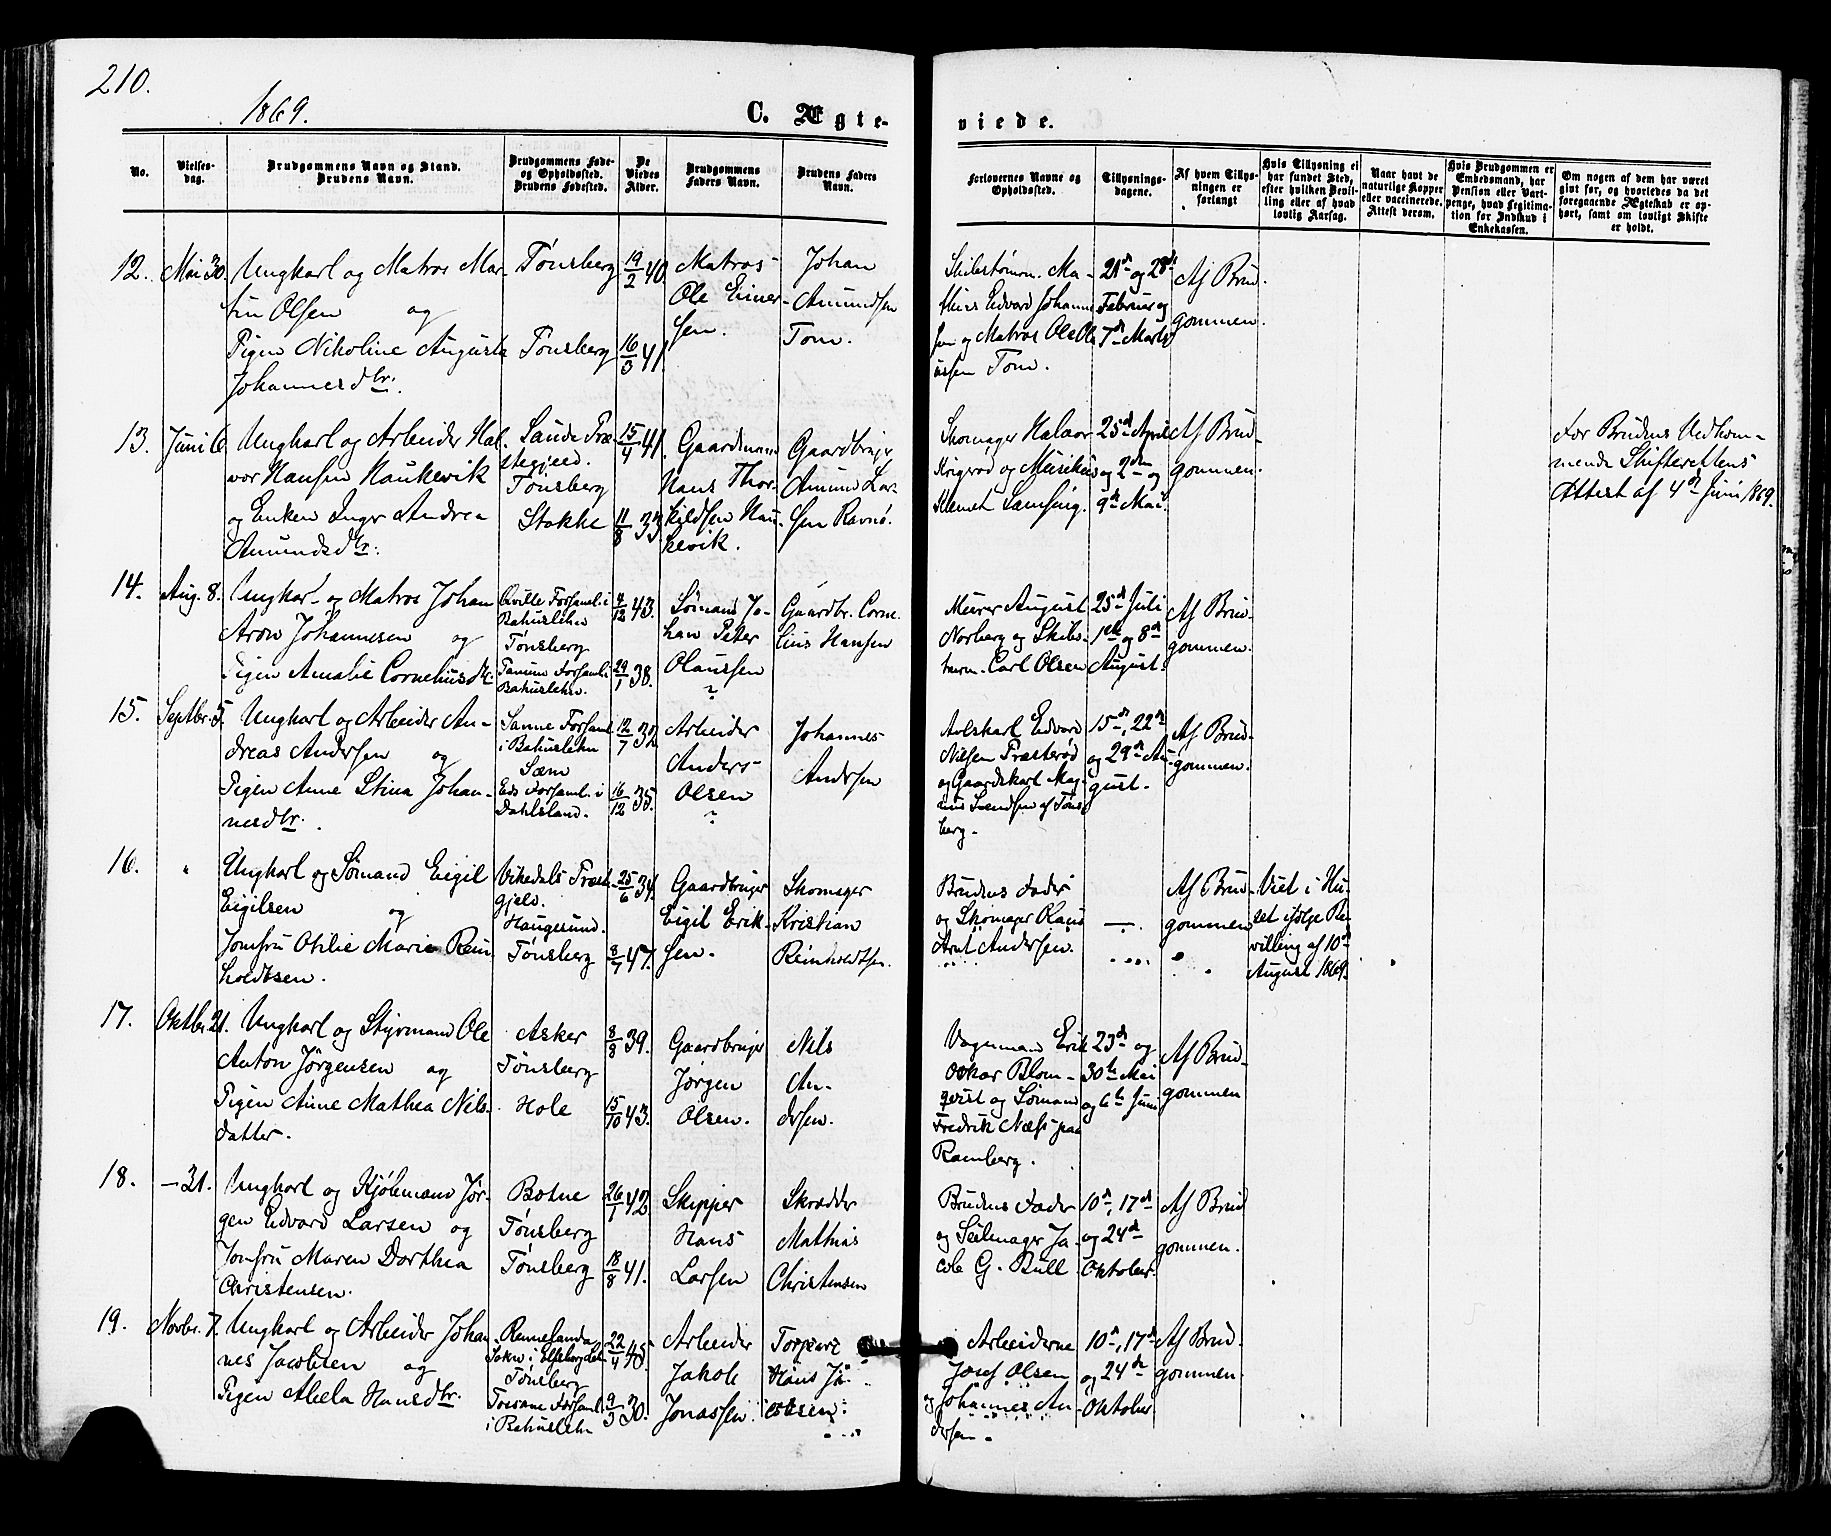 210.
1869.
C. Ægte-
viede.
No.
Vielses-
dag.
Brudgommens Navn og Stand.
Brudens Navn.
Brudgommens Føde-
og Opholdssted.
Brudens Fødested.
De
Viedes
Alder.
Brudgommens
Faders Navn.
Brudens Faders
Navn.
Forlovernes Navne og
Opholdssted.
Tillysnings-
dagene.
Af hvem Tillys-
ningen er
forlangt
Hvis Tillysning ei
har fundet Sted,
efter hvilken Bevil-
ling eller af hvad
lovlig Aarsag.
Naar havt de
naturlige Kopper
eller vaccinerede.
Attest derom.
Hvis Brudgommen er
Embedsmand, har
Pension eller Vart-
penge, hvad Legitima-
tion for Indskud i
Enkekassen.
Om nogen af dem har været
givt før, og hvorledes da det
foregaaende Ægteskab er op-
hørt, samt om lovligt Skifte
er holdt.
12.
Mai 30.
Ungkarl og Matros Mar-
tin Olsen og
Pigen Nikoline Auguste
Johannesdtr.
Tønsberg
Tønsberg
19/2 40.
16/3 41.
Matros
Ole Einer-
sen.
Johan
Amundsen
Tom.
Skibstømm. Ma-
thias Edvard Johanne-
sen og Matros Ole Ol-
aissen Tom.
21de og 28de
Februar og
7de Marts
Af Brud-
gommen.
13.
Juni 6.
Ungkarl og Arbeider Hal-
vor Hansen Haukevik
og Enken Inger Andrea
Amundsdtr.
Sande Præ-
stegjeld.
Tønsberg
Stokke
15/4 41.
11/8 33
Gaardmand
Hans Thor-
kildsen Hau-
kevik.
Gaardbruger
Amund Lar-
sen Ravnø.
Skomager Halvor
Krigsrød og Musikus
Klemet Lamsing.
25de April
og 2den og
9de Mai.
Af Brud-
gommen.
For Brudens Vedkom-
mende Skifterettens
Attest af 4de Juni 1869.
14.
Aug. 8.
Ungkarl og Matros Johan
Aron Johannesen og
Pigen Amalie Corneliusdtr.
Qville Forsaml. i
Bahuslehn
Tønsberg
Tanum Forsaml. i
Bahuslehn.
4/12 43.
29/1 38.
Sømand Jo-
han Peter
Olaussen
?
Gaardbr. Corne-
lius Hansen
Murer August
Norberg og Skibs-
tømm. Carl Olsen
25de Juli
1ste og 8de
August.
Af Brud-
gommen.
15.
Septbr. 5.
Ungkarl og Arbeider An-
dreas Andersen og
Pigen Anne Stina Johan-
nesdtr.
Sanne Forsaml.
i Bahuslehn
Sæm
Eds Forsaml. i
Dahlsland.
12/7 32
16/12 35.
Arbeider
Anders
Olsen
?
Johannes
Andersen
Avlskarl Edvard
Nilsen Præsterød
og Gaardskarl Mag-
nus Svendsen af Tøns-
berg.
15de, 22de
og 29de Au-
gust.
Af Brud-
gommen.
16.
"
Ungkarl og Sømand Eigil
Eigilsen og
Jomfru Otilie Marie Rein-
holdtsen.
Vikedals Præst-
gjeld.
Haugesund.
Tønsberg
25/6 34.
8/7 47.
Gaardbruger
Eigil Erik-
sen.
Skomager
Kristian
Reinholdtsen.
Brudens Fader
og Skomager Hans
Arnt Andersen.
—.
Af Brud-
gommen
Viet i Hu-
set ifølge Be-
villing af 10de
August 1869.
17.
Oktbr. 21.
Ungkarl og Styrmand Ole
Anton Jørgensen og
Pigen Anne Mathea Nils-
datter.
Asker
Tønsberg
Hole
8/8 39.
15/10 43.
Gaardbruger
Jørgen
Olsen.
Nils
An-
dersen.
Vognmand Erik
Oskar Blom-
qvist og Sømand
Fredrik Næss paa
Ramberg.
23de og
30te Mai
og 6te Juni
Af Brud-
gommen
18.
— 31.
Ungkarl og Kjøbmand Jør-
gen Edvard Larsen og
Jomfru Maren Dorthea
Christensen.
Botne
Tønsberg
Tønsberg
26/1 42
18/8 41.
Skipper
Hans
Larsen
Skrædder
Mathias
Christensen
Brudens Fader
og Seilmager Ja-
cob G. Bull
10de, 17de
og 24de
Oktober.
Af Brud-
gommen.
19.
Novbr. 7.
Ungkarl og Arbeider Johan-
nes Jacobsen og
Pigen Abela Hansdtr.
Rennelanda
Sokn i Elfsborg Lehn
Tønsberg
Forsaml.
i Bahuslehn
22/4 45.
9/3 30.
Arbeider
Jakob
Jonassen
Torpare
Hans Ja-
cobsen.
Arbeiderne
Josef Olsen
og Johannes An-
dersen.
10de, 17de
og 24de
Oktober
Af Brud-
gommen.